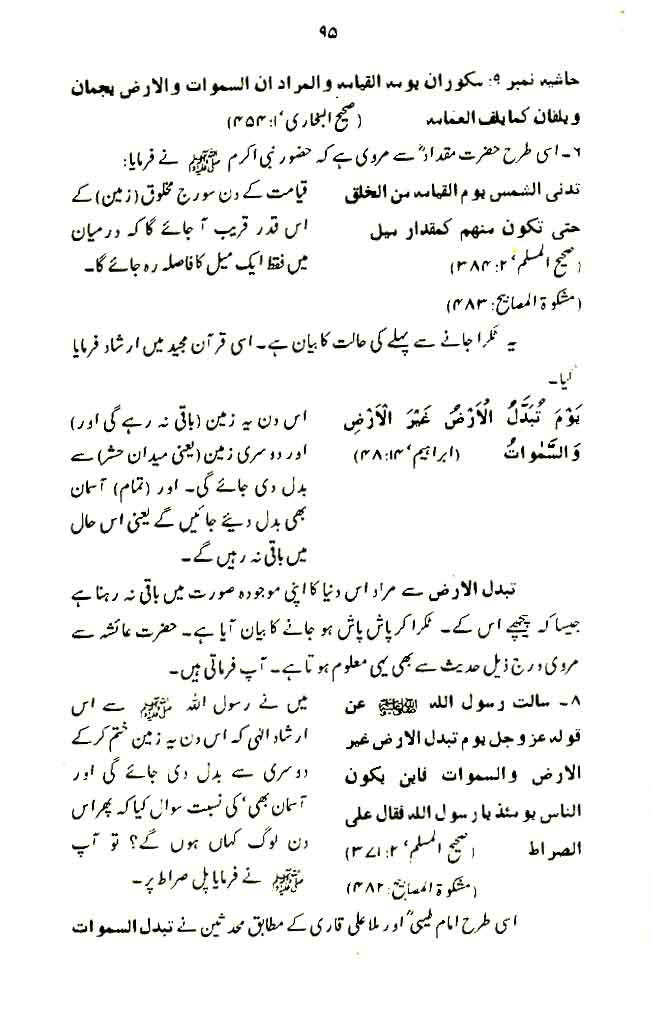 ۹۵
حاشیہ نمبر ۹: سکوران یوسد القیاسد والمراد ان السموات والارض یجمان
ویلفان کمایلف العماسد (صحیح البخاری ' ۱: ۴۵۴)
۶۔ اسی طرح حضرت مقدادؓ سے مروی ہے کہ حضور نبی اکرم ﷺ نے فرمایا:
تدنی الشمس یوم القیاسد من الخلق
حتی تکون منھم کمقدار میل
(صحیح المسلم ' ۲: ۳۸۴)
(مشکوۃ المصابیح: ۴۸۳)
قیامت کے دن سورج مخلوق (زمین) کے
اس قدر قریب آ جائے گا کہ درمیان
میں فقط ایک میل کا فاصلہ رہ جائے گا۔
یہ ٹکرا جانے سے پہلے کی حالت کا بیان ہے۔ اسی قرآن مجید میں ارشاد فرمایا
گیا۔
یَوْمَ تُبَدَّلُ الْاَرْضُ غَیْرَ الْاَرْضِ
وَالسَّمٰوَاتُ (ابراہیم ' ۱۴: ۴۸)
اس دن یہ زمین (باقی نہ رہے گی اور)
اور دوسری زمین (یعنی میدان حشر) سے
بدل دی جائے گی۔ اور (تمام) آسمان
بھی بدل دیئے جائیں گے یعنی اس حال
میں باقی نہ رہیں گے۔
تبدل الارض سے مراد اس دنیا کا اپنی موجودہ صورت میں باقی نہ رہنا ہے
جیسا کہ پیچھے اس کے۔ ٹکرا کر پاش پاش ہو جانے کا بیان آیا ہے۔ حضرت عائشہ سے
مروی درج ذیل حدیث سے بھی یہی معلوم ہوتا ہے۔ آپ فرماتی ہیں۔
۸۔ سالت رسول اللہ ﷺ عن
قولہ عز وجل یوم تبدل الارض غیر
الارض والسموات فاین یکون
الناس یوسئذ یا رسول اللہ فقال علی
الصراط (صحیح المسلم ' ۲: ۳۷۱)
(مشکوۃ المصابیح: ۴۸۲)
میں نے رسول اللہ ﷺ سے اس
ارشاد الٰہی کہ اس دن یہ زمین ختم کرکے
دوسری سے بدل دی جائے گی اور
آسمان بھی' کی نسبت سوال کیا کہ پھر اس
دن لوگ کہاں ہوں گے؟ تو آپ
ﷺ نے فرمایا پل صراط پر۔
اسی طرح امام طیبیؒ اور ملا علی قاری کے مطابق محدثین نے تبدل السموات